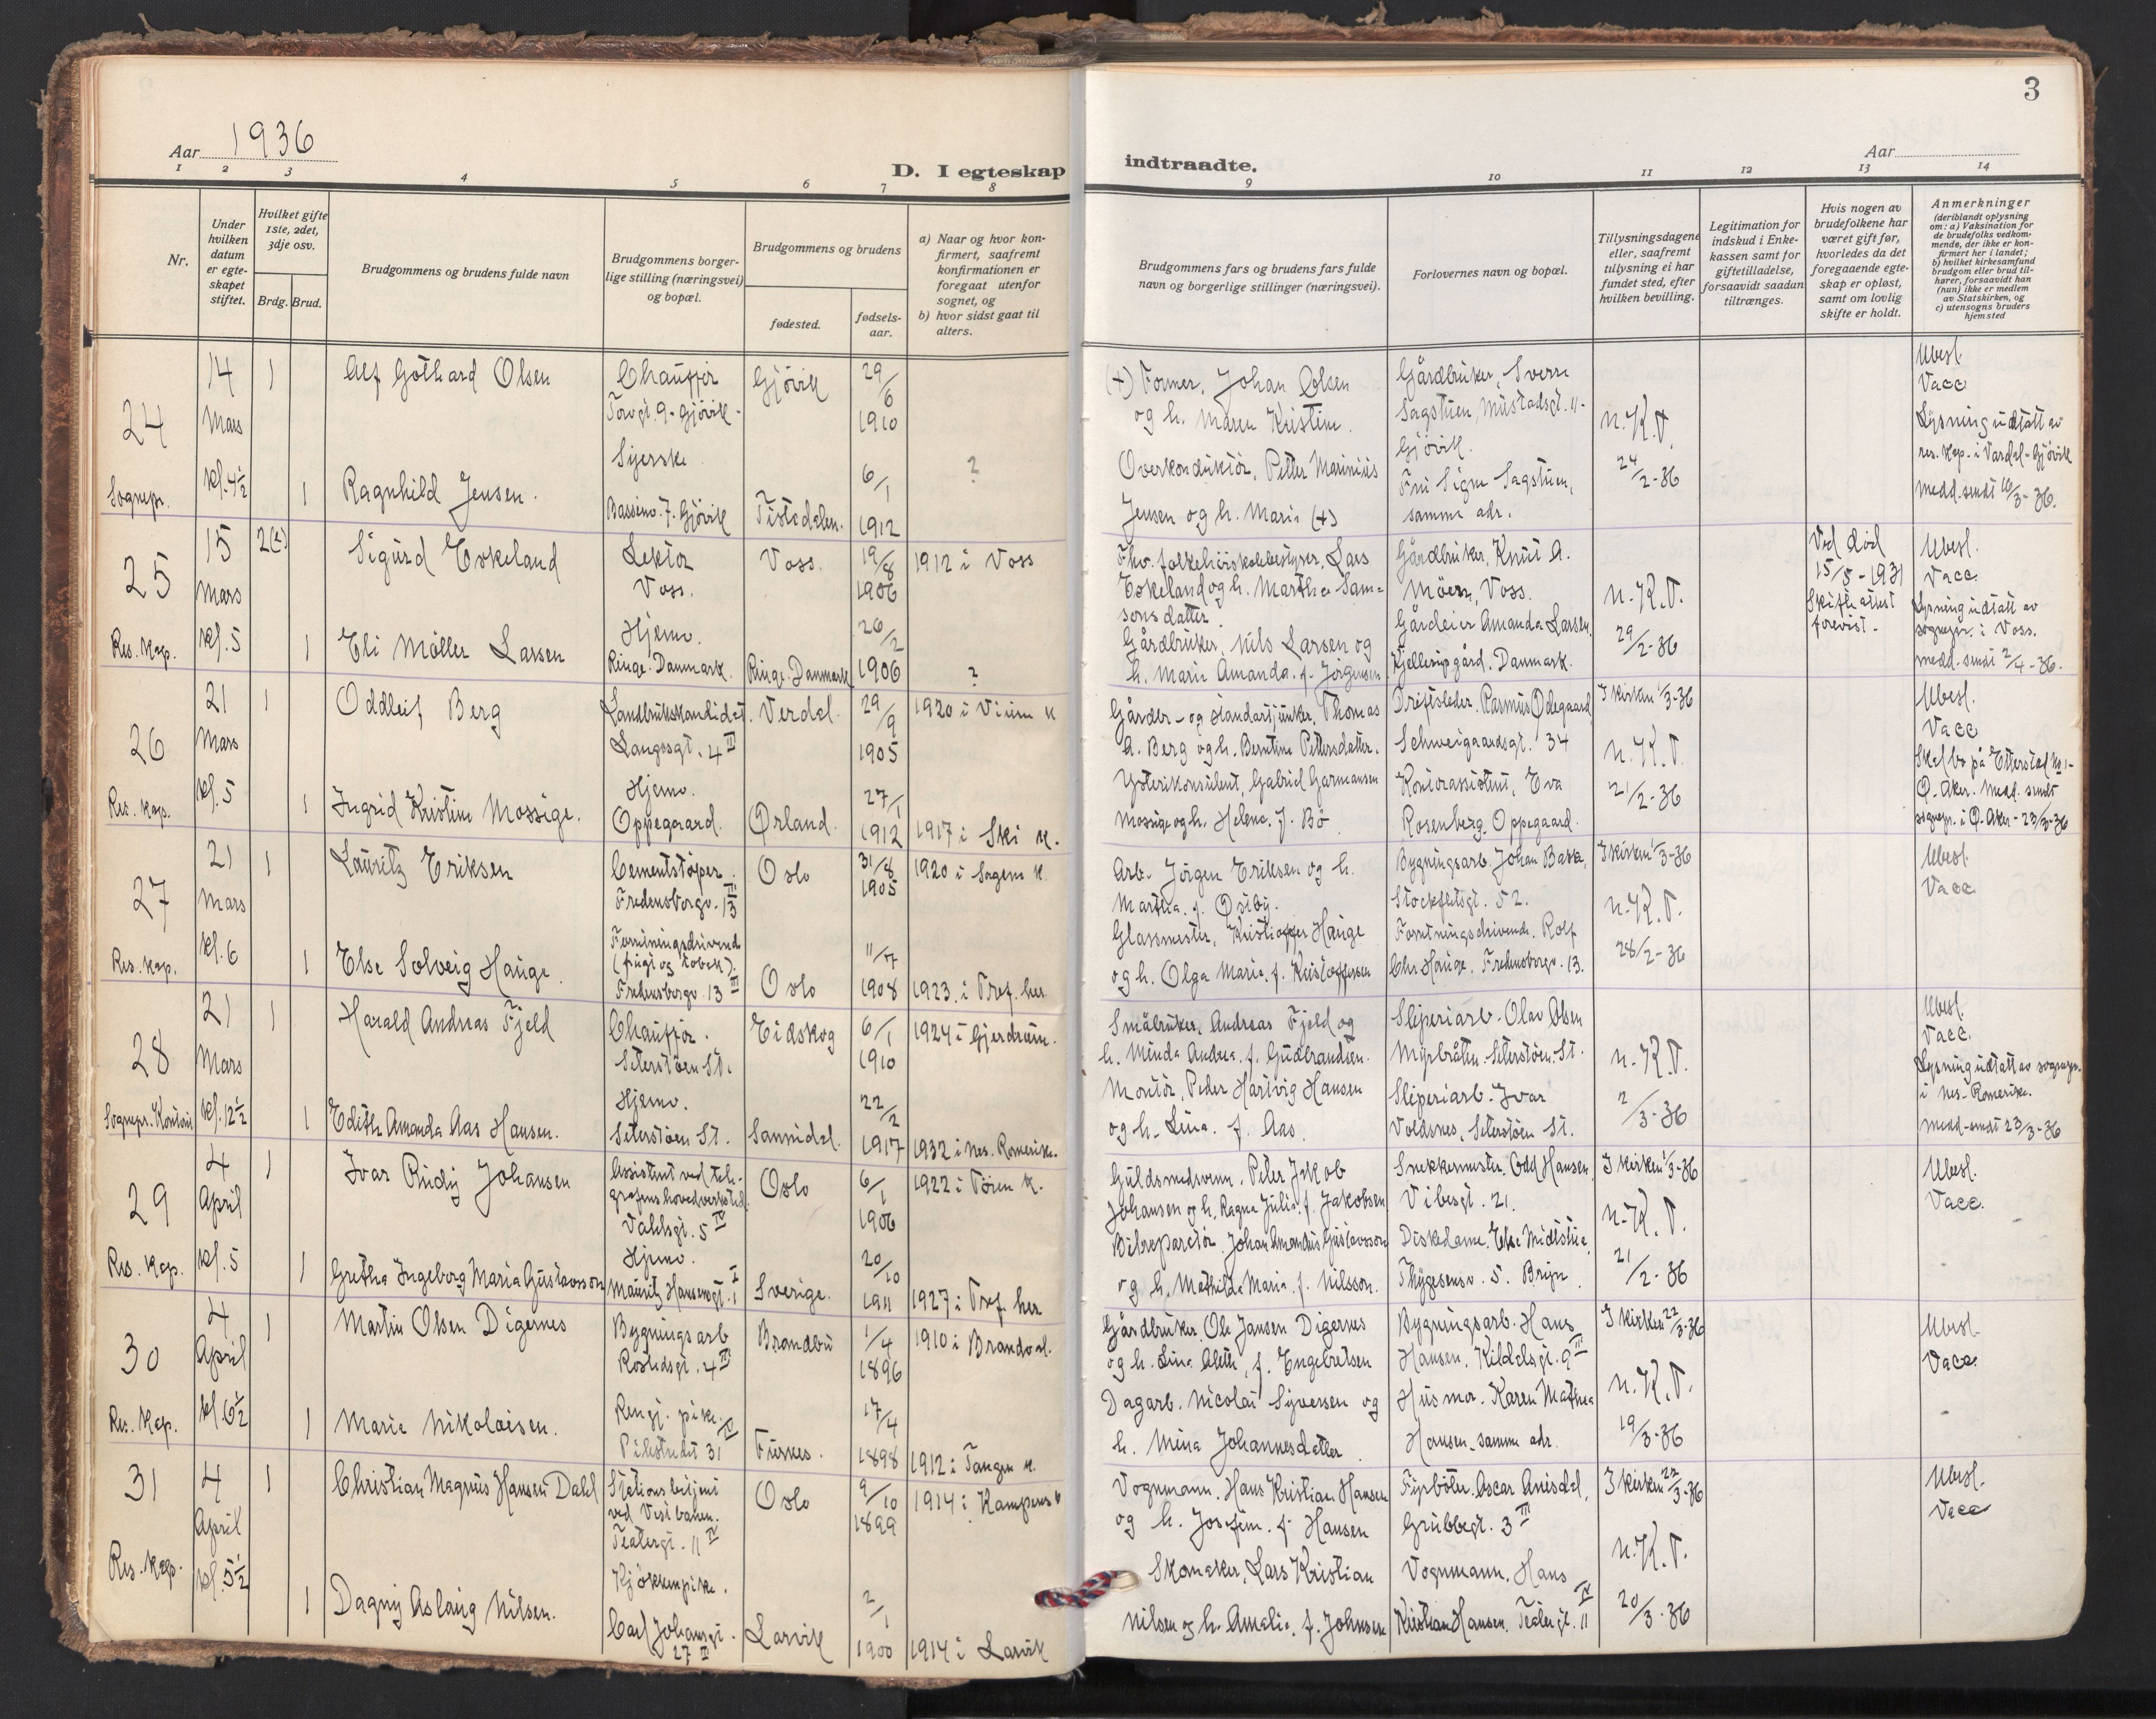 3
Aar 1936
D. I egteskap
indtraadte.
Aar
1 2 3 4 5 6 7 8 9 10 11 12 13 14
Nr.
Under hvilken datum er egte-skapet stiftet.
Hvilket gifte 1ste, 2det, 3dje osv.
Brdg. Brud.
Brudgommens og brudens fulde navn
Brudgommens borger-lige stilling (næringsvei) og bopæl.
Brudgommens og brudens
fødested.
fødsels-aar.
a) Naar og hvor kon-firmert, saafremt konfirmationen er foregaat utenfor sognet, og
b) hvor sidst gaat til alters.
Brudgommens fars og brudens fars fulde navn og borgerlige stillinger (næringsvei).
Forlovernes navn og bopæl.
Tillysningsdagene eller, saafremt tillysning ei har fundet sted, efter hvilken bevilling.
Legitimation for indskud i Enke-kassen samt for giftetilladelse, forsaavidt saadan tiltrænges.
Hvis nogen av brudefolkene har været gift før, hvorledes da det foregaaende egte-skap er opløst, samt om lovlig skifte er holdt.
Anmerkninger
(deriblandt oplysning om: a) Vaksination for de brudefolks vedkom-mende, der ikke er kon-firmert her i landet; b) hvilket kirkesamfund brudgom eller brud til-hører, forsaavidt han (hun) ikke er medlem av Statskirken, og c) utensogns bruders hjemsted
24 Sognepr.
14 Mars kl. 4½
1 Alf Gothard Olsen
Chauffør Torvgt. 9. Gjøvik
Gjøvik 29/6 1910
(+) Former, Johan Olsen og h. Maren Kristine.
Gårdbruker, Sverre Sagstuen, Mustadsgt. 11 - Gjøvik.
n. K. T. 24/2-36
Ubesl. Vacc Lysning udtatt av res. kap. i Vardal-Gjøvik medd. sendt 16/3-36.
1 Ragnhild Jensen.
Syerske Bassenv. 7. Gjøvik
Tistedalen. 6/1 1912 ?
Overkonduktør, Petter Marinius Jensen og h. Marie (+)
Fru Signe Sagstuen, samme adr.
25 Res. Kap.
15 Mars kl. 5
2(2) Sigurd Eskeland
Lektor Voss.
Voss. 19/8 1906 1912 i Voss
Fhv. folkehøiskolebestyrer, Lars Eskeland og h. Martha Sam=sonsdatter.
Gårdbruker, Knut A. Møen, Voss.
n. K. T. 29/2-36
Ved død 15/5-1931 Skifteattest forevist.
Ubesl. Vacc. Lysning udtatt av sognepr. i Voss. medd. sendt 2/4-36.
1 Eli Møller Larsen
Hjemv. Ringe. Danmark.
Ringe. Danmark 26/2 1906 ?
Gårdbruker, Nils Larsen og h. Marie Amanda. f. Jørgensen
Gårdeier Amanda Larsen, Kjellerupgård. Danmark.
26 Res. kap.
21 Mars kl. 5
1 Oddleif Berg
Landbrukskandidat. Langesgt. 4 III
Verdal. 29/9 1905
Gårdbr- og standartjunker, Thomas A. Berg og h. Berntine Pettersdatter.
Driftsleder. Rasmus Ødegaard Schweigaardsgt. 34
I kirken 1/3-36 n. K. T. 21/2-36
Ubesl. Vacc Skal bo på Etterstad No 1 - Ø. Aker. Medd. sendt sognepr. i Ø. Aker - 23/3-36
1 Ingrid Kristine Mossige.
Hjemv. Oppegaard.
Ørland. 27/1 1912 1917 i Ski K.
Ysterikonsulent, Gabriel Garmansen Mossige og h. Helene. f. Bø
Kontorassistent, Eva Rosenberg. Oppegaard.
27 Res. kap.
21 Mars kl. 6
1 Lauritz Eriksen
Cementstøper. Fredensborgv. 13 III
Oslo 31/8 1905 1920 i Sagene K.
Arb. Jørgen Eriksen og h. Martha. f. Østby.
Bygningsarb. Johan Bakke, Stockfletsgt. 52.
I kirken 1/3-36 n. K. T. 28/2-36
Ubesl. Vacc.
1 Else Solveig Hauge.
Forretningsdrivende (frugt og tobak). Fredensborgv. 13 III
Oslo 11/7 1908 1923. i Tref. her
Glassmester, Kristoffer Hauge og h. Olga Marie. f. Kristoffersen
Forretningsdrivende. Rolf Chr Hauge. Fredensborgv. 13.
28 Sognepr. Kontoret
21 Mars kl. 12½
1 Harald Andreas Fjeld
Chauffør. Seterstøen St.
Eidskog 6/1 1910 1924 i Gjerdrum.
Småbruker, Andreas Fjeld og h. Minda Andrea. f. Gudbrandsen.
Sliperiarb. Olav Olsen Myrbråten. Seterstøen. St.
n. K. T. 2/3-36
Ubesl. Vacc. Lysning udtatt av sognepr. i Nes- Romerike. medd. sendt 23/3-36
1 Edith Amanda Aas Hansen.
Hjemv. Seterstøen St.
Sannidal. 22/2 1917 1932 i Nes. Romerike.
Montør, Peder Hartvig Hansen og h. Lina. f. Aas.
Sliperiarb. Ivar Voldsnes, Seterstøen St.
29 Res. Kap.
4 April kl. 5
1 Ivar Rudy Johansen
Assistent ved tele-grafens hovedverksted. Valdsgt. 5 IV
Oslo 6/1 1906 1922 i Tøien K.
Guldsmedsvenn. Peter Jakob Johansen og h. Ragna Julie. f. Jakobsen
Snekkermester. Odd Hansen, Vibesgt. 21.
I kirken 1/3-36 n. K. T. 21/2-36
Ubesl. Vacc.
1 Gretha Ingeborg Maria Gustavsson
Hjemv. Mauritz Hansensgt. 1 I
Sverige. 20/10 1911 1927 i Tref. her
Bilreparatør. Johan Amandus Gustavsson og h. Mathilda Maria. f. Nilsson.
Diskedame. Else Midtstue, Thygesensv. 5. Bryn.
30 Res. Kap.
4 April kl. 6½
1 Martin Olsen Digernes
Bygningsarb Rostedsgt. 4 III
Brandbu 1/4 1896 1910 i Brandval.
Gårdbruker, Ole Jansen Digernes og h. Lina Alette, f. Engebretsen
Bygningsarb. Hans Hansen. Kildalsgt. 9 III
I kirken 22/3-36 n. K. T. 19/3-36
Ubesl. Vacc.
1 Marie Nikolaisen.
Rengj. pike. Pilestredet 31 IV
Fuskes. 17/4 1898 1912 i Tangen K.
Dagarb. Nicolai Syversen og h. Mina Johannesdatter
Husmor. Karen Mathea Hansen, samme adr.
31 Res. Kap.
4 April kl. 5½
1 Christian Magnus Hansen Dahl
Stationsbetjent ved Vestbanen. Teatergt. 11 IV
Oslo 9/10 1899 1914 i Kampens K
Vognmann. Hans Kristian Hansen og h. Josefine. f. Hansen
Fyrbøter. Oscar Anisdal, Grubbegt. 3 III
I kirken 22/3-36 n. K. T. 20/3-36
Ubesl. Vacc
1 Dagny Aslaug Nilsen.
Kjøkkenpike. Carl Johansgt. 27 II
Larvik 2/1 1900 1914 i Larvik
Skomaker, Lars Kristian Nilsen og h. Amalie. f. Johnsen
Vognmann. Hans Kristian Hansen. Teatergt. 11 IV